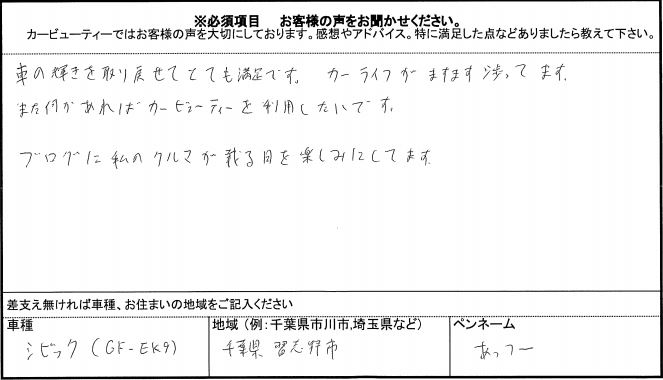 ※必須項目　お客様の声をお聞かせください。
カービューティーではお客様の声を大切にしております。感想やアドバイス。特に満足した点などありましたら教えて下さい。
車の輝きを取り戻せてとても満足です。 カーライフがますます渉ってます。
また何かあればカービューティーを利用したいです。
ブログに私のクルマが載る日を楽しみにしてます
差支え無ければ車種、お住まいの地域をご記入ください
車種
地域（例：千葉県市川市,埼玉県など）
ペンネーム
シビック（GF-EK9）
千葉県 習志野市
あっつー